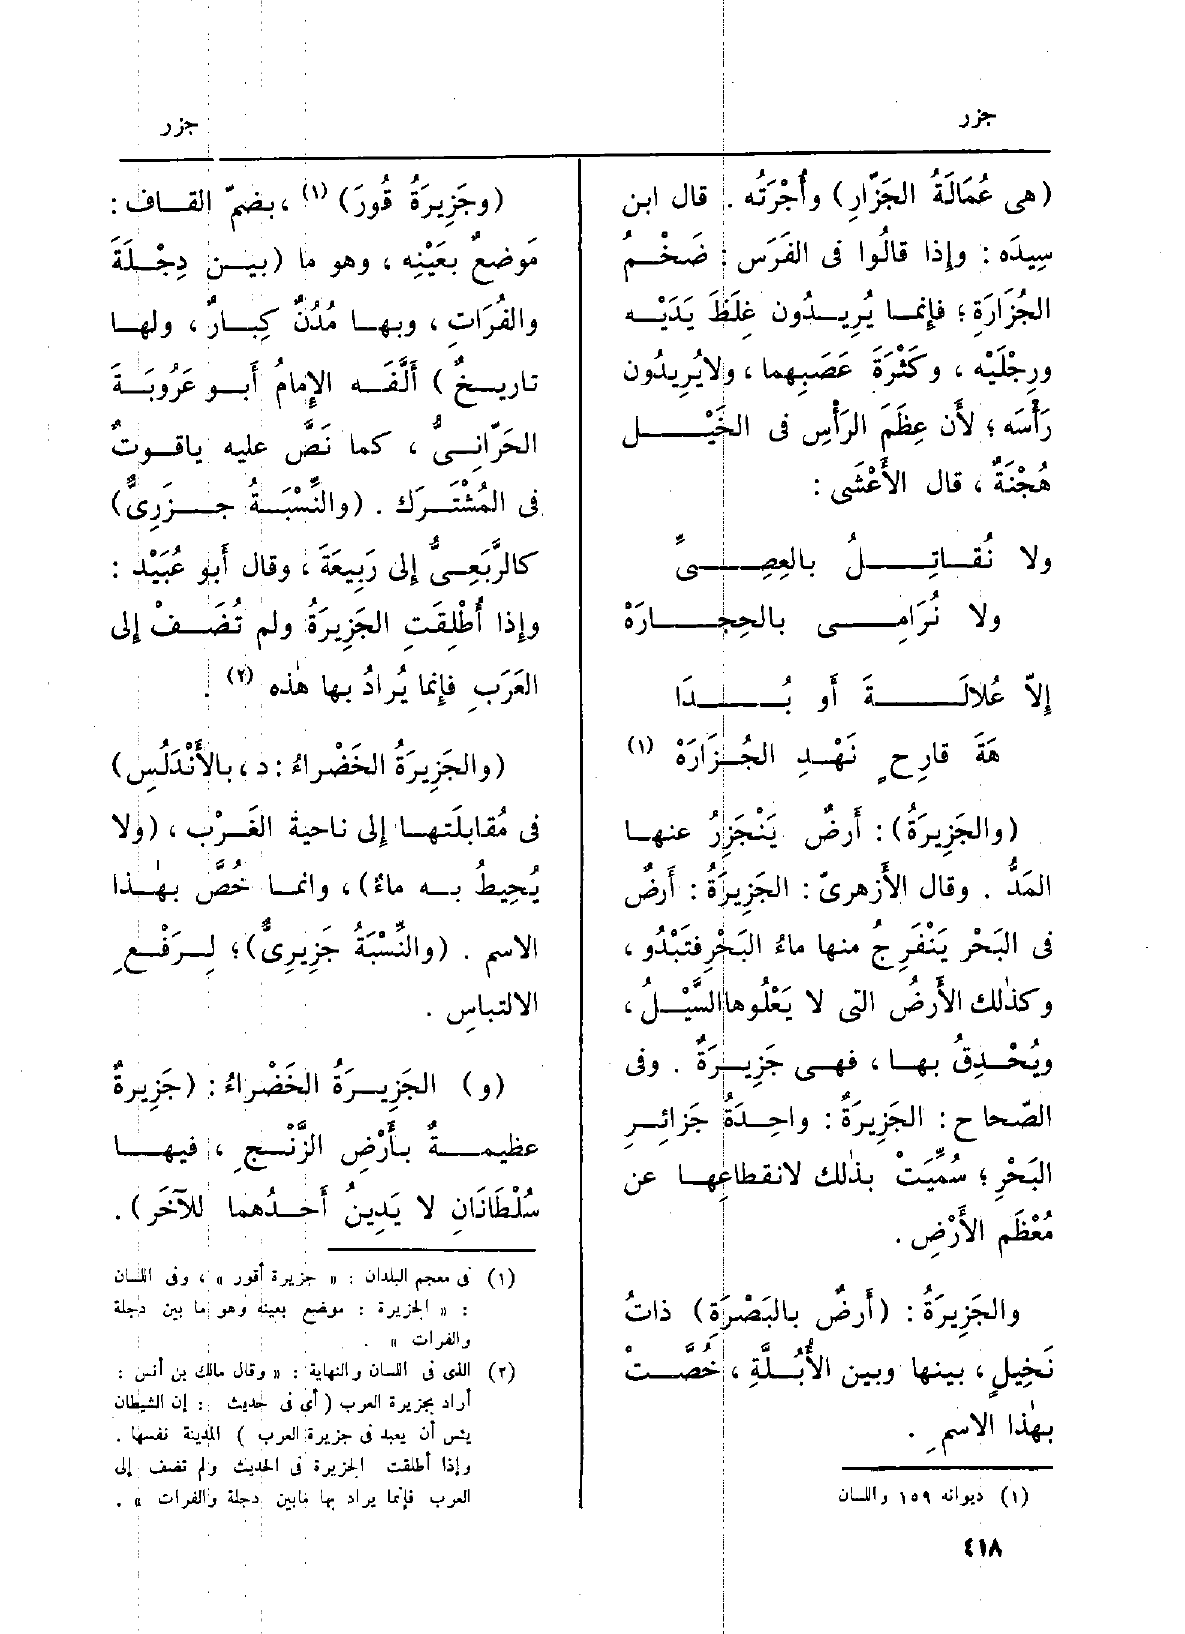 جزر
جزر
(هى عُمَالَةُ الجَزَّارِ) وأُجْرَتُه . قال ابن
سِيدَه : وإذا قالُوا فى الفَرَسِ : ضَخْمُ
الجُزَارَةِ ؛ فإنمــا يُرِيــدُون غِلَظَ يَدَيْــه
ورِجْلَيْه ، وكَثْرَةَ عَصَبِهما ، ولا يُرِيدُون
رَأْسَه ؛ لأَن عِظَمَ الرَأْسِ فى الخَيْــل
هُجْنَةٌ ، قال الأَعْشَى :
ولا نُقــاتِــلُ بالعِصِــىِّ
ولا نُرَامِــى بالحِجــارَهْ
إِلاّ عُلالَــةَ أو بُــدَا
هَةَ قارِحٍ نَهْــدِ الجُــزَارَهْ (١)
(والجَزِيرَةُ) : أَرضٌ يَنْجَزِرُ عنهــا
المَدُّ . وقال الأَزهرىّ : الجَزِيرَةُ : أَرضٌ
فى البَحْر يَنْفَرِجُ منها ماءُ البَحْرِ فتَبْدُو ،
وكذٰلك الأَرضُ التى لا يَعْلُوها السَّيْلُ ،
ويُحْــدِقُ بهــا ، فهــى جَزِيــرَةٌ . وفى
الصّحاح : الجَزِيرَةُ : واحِــدَةُ جَزائِــرِ
البَحْرِ ؛ سُمِّيَتْ بذٰلك لانقطاعِهــا عن
مُعْظَم الأَرْضِ .
والجَزِيرَةُ : (أَرضٌ بالبَصْرَةِ) ذاتُ
نَخِيلٍ ، بينها وبين الأُبُــلَّةِ ، خُصَّــتْ
بهٰذا الاسمِ .
(١) ديوانه ١٥٩ واللسان
(وجَزِيرَةُ قُورَ) (١) ، بضمّ القــاف :
مَوضعٌ بعَيْنِه ، وهو ما (بيــن دِجْــلَةَ
والفُرَاتِ ، وبهــا مُدُنٌ كِبــارٌ ، ولهــا
تاريــخٌ ) أَلَّفَــه الإِمامُ أَبــو عَرُوبَــةَ
الحَرّانِــىُّ ، كما نَصَّ عليه ياقوتٌ
فى المُشْتَــرَك . (والنِّسْبَــةُ جــزَرِىٌّ)
كالرَّبَعِــىِّ إلى رَبِيعَةَ ، وقال أَبو عُبَيْد :
وإذا أُطْلِقَتِ الجَزِيرَةُ ولم تُضَــفْ إلى
العَرَبِ فإنما يُرادُ بها هٰذه (٢) .
(والجَزِيرَةُ الخَضْراءُ : د ، بالأَنْدَلُسِ)
فى مُقابلَتهــا إلى ناحية الغَــرْب ، (ولا
يُحِيطُ بــه ماءٌ) ، وانمــا خُصَّ بهٰــذا
الاسم . (والنِّسْبَةُ جَزِيرِىٌّ) ؛ لِــرَفْــعِ
الالتباسِ .
(و) الجَزِيــرَةُ الخَضْراءُ : (جَزِيرةٌ
عظيمــةٌ بــأَرْضِ الزَّنْــجِ ، فيهــا
سُلْطَانَانِ لا يَدِينُ أَحــدُهما للآخَر) .
(١) فى معجم البلدان : « جزيرة أقور » ، وفى اللسان
: « الجزيرة : موضع بعينه وهو ما بين دجلة
والفرات » .
(٢) الذى فى اللسان والنهاية : « وقال مالك بن أنس :
أراد بجزيرة العرب ( أى فى حديث : إن الشيطان
يئس أن يعبد فى جزيرة العرب ) المدينة نفسها .
وإذا أطلقت الجزيرة فى الحديث ولم تضف إلى
العرب فإنما يراد بها مابين دجلة والفرات » .
٤١٨